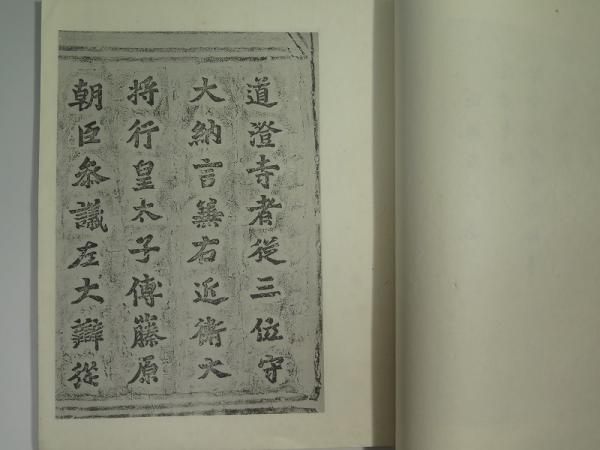 道澄寺者從三位守
大納言兼右近衛大
将行皇太子傅藤原
朝臣叅議左大辯從